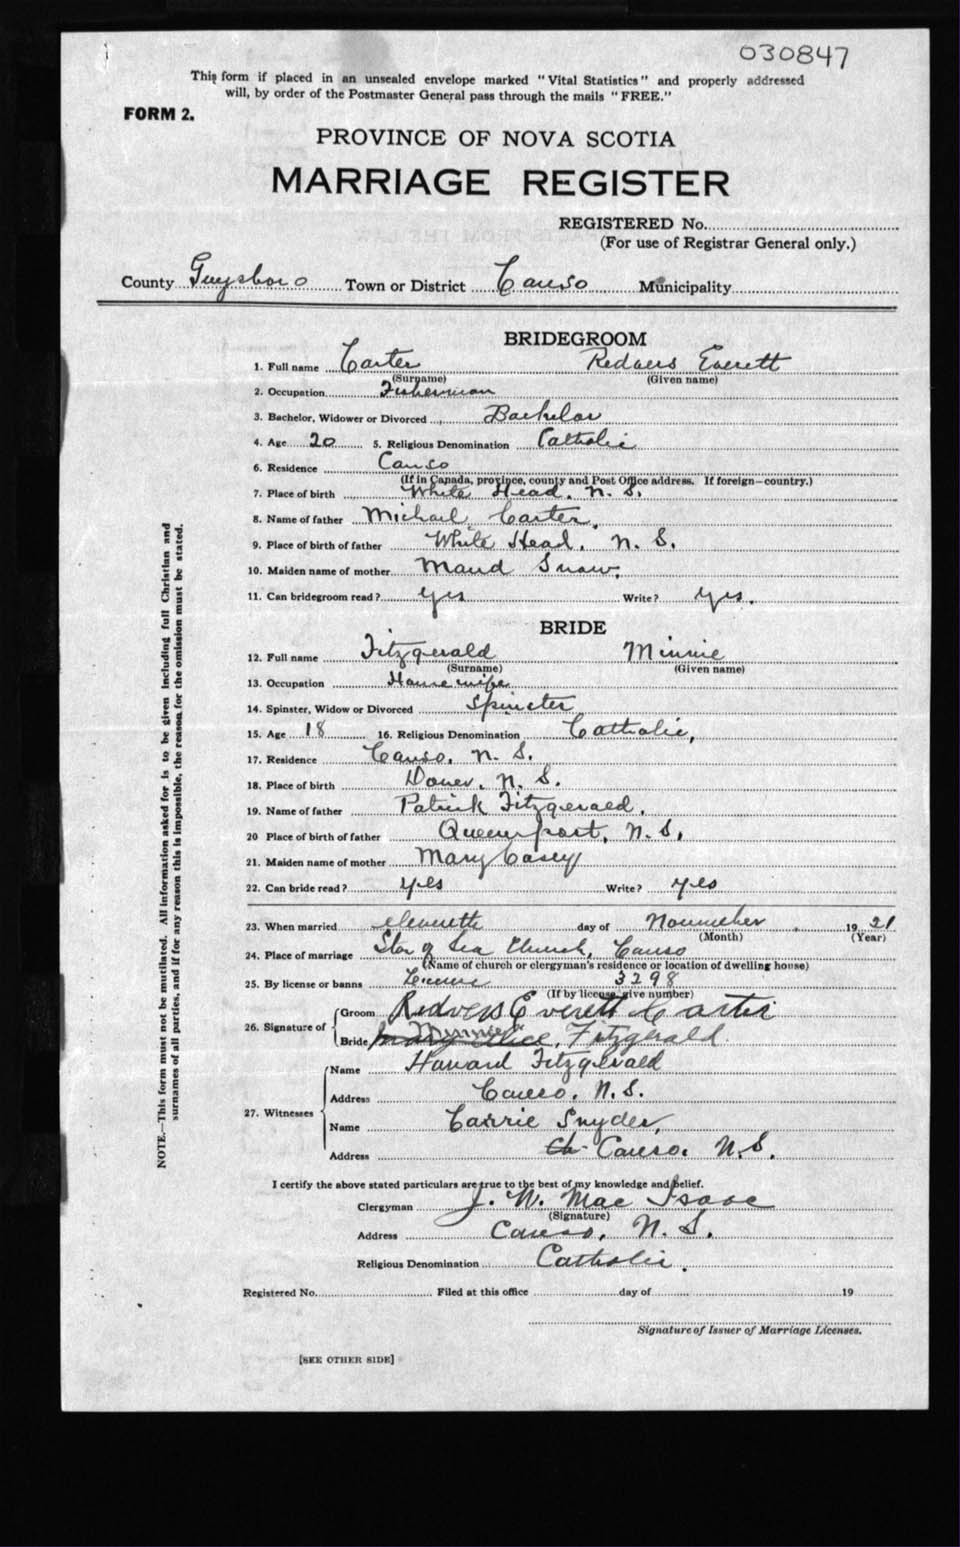 030847
This form if placed in an unsealed envelope marked "Vital Statistics" and properly addressed
will, by order of the Postmaster General pass through the mails "FREE."
FORM 2.
PROVINCE OF NOVA SCOTIA
MARRIAGE REGISTER
REGISTERED No.
(For use of Registrar General only.)
County Guysboro Town or District Canso Municipality
BRIDEGROOM
1. Full name Carter Redvers Everett
(Surname) (Given name)
2. Occupation Fisherman
3. Bachelor, Widower or Divorced Bachelor
4. Age 20 5. Religious Denomination Catholic
6. Residence Canso
(If in Canada, province, county and Post Office address. If foreign—country.)
7. Place of birth White Head, N. S.
8. Name of father Michael Carter,
9. Place of birth of father White Head, N. S.
10. Maiden name of mother Maud Snow,
11. Can bridegroom read? yes Write? yes.
BRIDE
12. Full name Fitzgerald Minnie
(Surname) (Given name)
13. Occupation Housewife
14. Spinster, Widow or Divorced Spinster
15. Age 18 16. Religious Denomination Catholic,
17. Residence Canso, N. S.
18. Place of birth Dover, N. S.
19. Name of father Patrick Fitzgerald,
20 Place of birth of father Queensport, N. S,
21. Maiden name of mother Mary Casey
22. Can bride read? yes Write? yes
23. When married eleventh day of November 1921
(Month) (Year)
24. Place of marriage Star of Sea Church, Canso
(Name of church or clergyman's residence or location of dwelling house)
25. By license or banns License 3298
(If by license, give number)
26. Signature of
Groom Redvers Everett Carter
Bride Mary Alice Minnie Fitzgerald
27. Witnesses
Name Howard Fitzgerald
Address Canso, N. S.
Name Carrie Snyder,
Address Canso, N. S.
I certify the above stated particulars are true to the best of my knowledge and belief.
Clergyman J. W. Mac Isaac
(Signature)
Address Canso, N. S.
Religious Denomination Catholic.
Registered No. Filed at this office day of 19
Signature of Issuer of Marriage Licenses.
[SEE OTHER SIDE]
NOTE.—This form must not be mutilated. All information asked for is to be given including full Christian and
surnames of all parties, and if for any reason this is impossible, the reason for the omission must be stated.